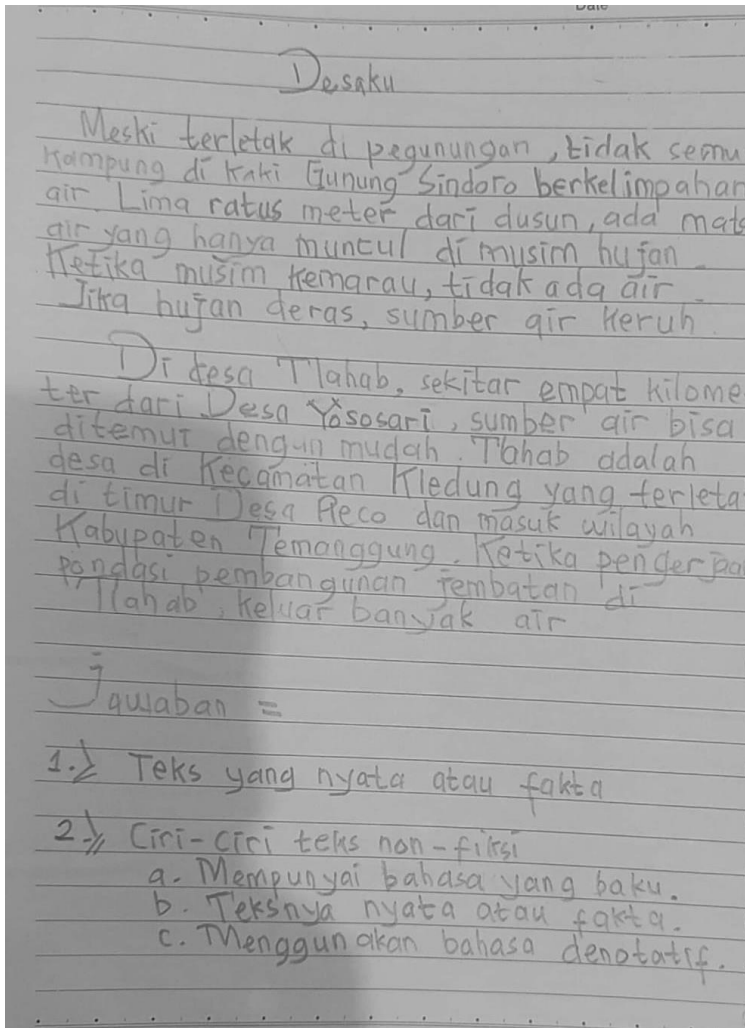 Date
Desaku
Meski terletak di pegunungan, tidak semu
Kampung di Kaki Gunung Sindoro berkelimpahan
air. Lima ratus meter dari dusun, ada mata
air yang hanya muncul di musim hujan.
Ketika musim kemarau, tidak ada air.
Jika hujan deras, sumber air keruh.
Di desa Tlahab, sekitar empat kilome
ter dari Desa Yososari, sumber air bisa
ditemui dengan mudah. Tlahab adalah
desa di Kecamatan Kledung yang terleta
di timur Desa Reco dan masuk wilayah
Kabupaten Temanggung. Ketika pengerjaa
pondasi pembangunan jembatan di
Tlahab, keluar banyak air
Jawaban =
1.> Teks yang nyata atau fakta
2.> Ciri-ciri teks non-fiksi
a. Mempunyai bahasa yang baku.
b. Teksnya nyata atau fakta.
c. Menggunakan bahasa denotatif.